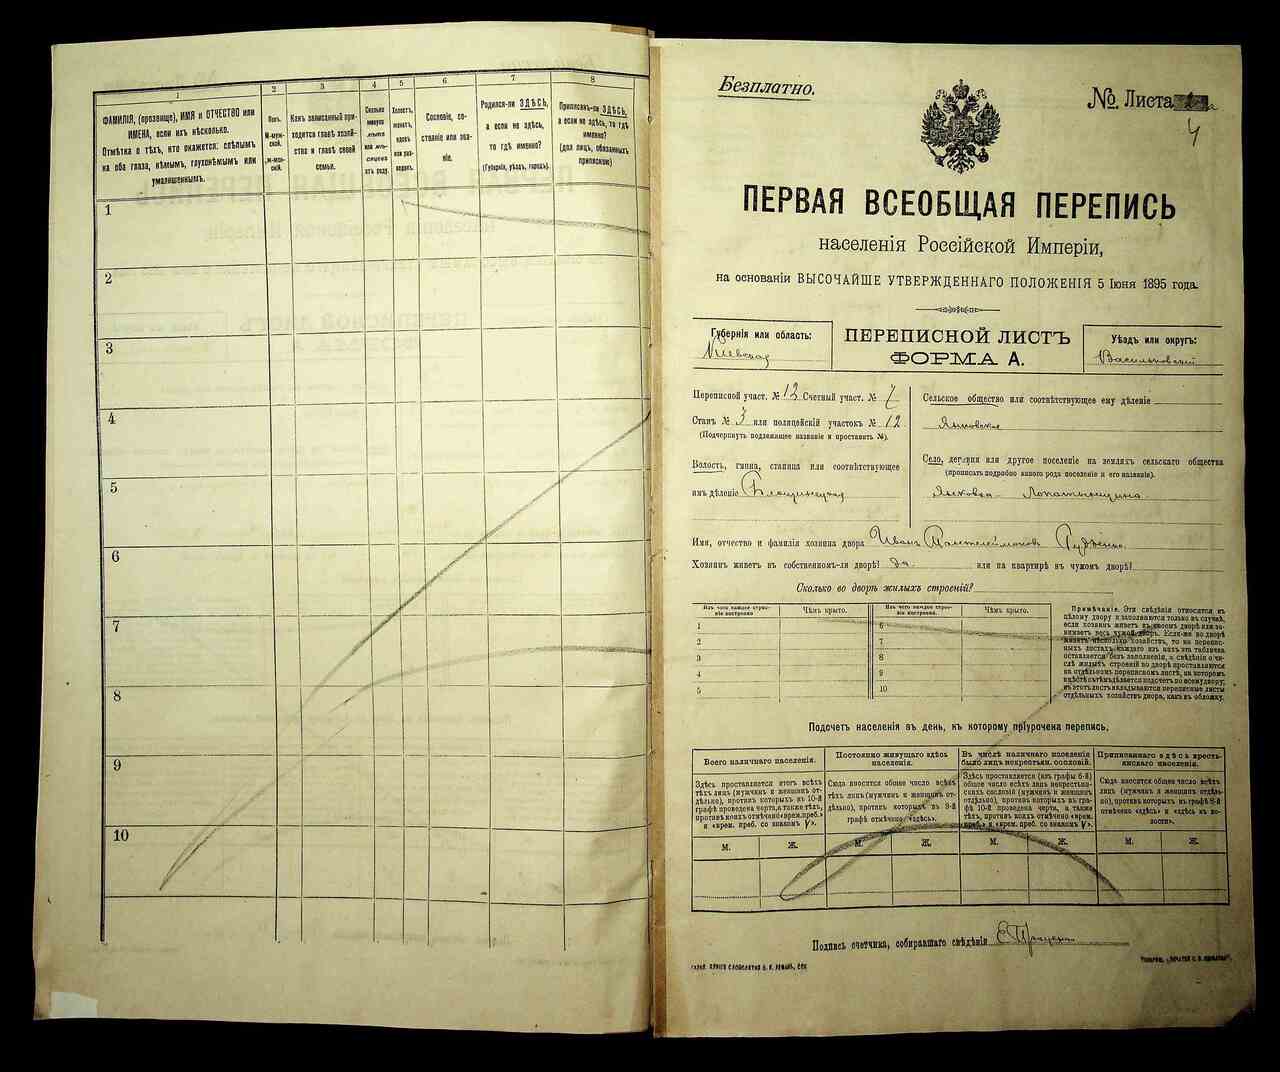 1
2
3
4
5
6
7
8
ФАМИЛІЯ, (прозвище), ИМЯ и ОТЧЕСТВО или
ИМЕНА, если ихъ нѣсколько.
Отмѣтка о тѣхъ, кто окажется: слѣпымъ
на оба глаза, нѣмымъ, глухонѣмымъ или
умалишеннымъ.
Полъ.
М-муж-
ской.
Ж-жен-
скій.
Какъ записанный при-
ходится главѣ хозяй-
ства и главѣ своей
семьи.
Сколько
минуло
лѣтъ
или мѣ-
сяцевъ
отъ роду.
Холостъ,
женатъ,
вдовъ
или раз-
веденъ.
Сословіе, со-
стояніе или зва-
ніе.
Родился-ли ЗДѢСЬ,
а если не здѣсь,
то гдѣ именно?
(Губернія, уѣздъ, городъ).
Приписанъ-ли ЗДѢСЬ,
а если не здѣсь, то гдѣ
именно?
(для лицъ, обязанныхъ
припискою)
1
2
3
4
5
6
7
8
9
10
Безплатно.
№ Листа
4
ПЕРВАЯ ВСЕОБЩАЯ ПЕРЕПИСЬ
населенія Россійской Имперіи,
на основаніи ВЫСОЧАЙШЕ УТВЕРЖДЕННАГО ПОЛОЖЕНІЯ 5 Іюня 1895 года.
Губернія или область:
Кіевская
ПЕРЕПИСНОЙ ЛИСТЪ
ФОРМА А.
Уѣздъ или округъ:
Васильковскій
Переписной участ. № 13 Счетный участ. № 7
Станъ № 3 или полицейскій участокъ № 12
(Подчеркнуть подлежащее названіе и проставить №).
Волость, гмина, станица или соотвѣтствующее
имъ дѣленіе
Сельское общество или соотвѣтствующее ему дѣленіе
Село, деревня или другое поселеніе на земляхъ сельскаго общества
(прописать подробно какого рода поселеніе и его названіе).
Имя, отчество и фамилія хозяина двора Иванъ Пантелеймоновъ Гудзенко
Хозяинъ живетъ въ собственномъ-ли дворѣ? да. или на квартирѣ въ чужомъ дворѣ?
Сколько во дворѣ жилыхъ строеній?
Изъ чего каждое строе-
ніе построено
Чѣмъ крыто.
Изъ чего каждое строе-
ніе построено.
Чѣмъ крыто.
1
2
3
4
5
6
7
8
9
10
Примѣчаніе. Эти свѣдѣнія относятся къ
цѣлому двору и заполняются только въ случаѣ,
если хозяинъ живетъ въ своемъ дворѣ или за-
нимаетъ весь чужой дворъ. Если-же во дворѣ
живетъ нѣсколько хозяйствъ, то на перепис-
ныхъ листахъ каждаго изъ нихъ эта табличка
оставляется безъ заполненія, а свѣдѣнія о чи-
слѣ жилыхъ строеній во дворѣ проставляются
на отдѣльномъ переписномъ листѣ, на которомъ
вмѣстѣ съ тѣмъ дѣлается подсчетъ по всему двору;
въ этотъ листъ вкладываются переписные листы
отдѣльныхъ хозяйствъ двора, какъ въ обложку.
Подсчетъ населенія въ день, къ которому пріурочена перепись.
Всего наличнаго населенія.
Постоянно живущаго здѣсь
населенія.
Въ числѣ наличнаго населенія
было лицъ некрестьян. сословій.
Приписаннаго здѣсь кресть-
янскаго населенія.
Здѣсь проставляется итогъ всѣхъ
тѣхъ лицъ (мужчинъ и женщинъ от-
дѣльно), противъ которыхъ въ 10-й
графѣ проведена черта, а также тѣхъ,
противъ коихъ отмѣчено «врем. преб.»
и «врем. преб. со знакомъ V».
Сюда вносится общее число всѣхъ
тѣхъ лицъ (мужчинъ и женщинъ от-
дѣльно), противъ которыхъ въ 9-й
графѣ отмѣчено «здѣсь».
Здѣсь проставляется (изъ графы 6-й)
общее число всѣхъ лицъ некрестьян-
скихъ сословій (мужчинъ и женщинъ
отдѣльно), противъ которыхъ въ гра-
фѣ 10-й проведена черта, а также
тѣхъ, противъ коихъ отмѣчено «врем.
преб.» и «врем. преб. со знакомъ V».
Сюда вносится общее число всѣхъ
лицъ (мужчинъ и женщинъ отдѣль-
но), противъ которыхъ въ графѣ 8-й
отмѣчено «здѣсь» и «здѣсь въ во-
лости».
М. Ж. М. Ж. М. Ж. М. Ж.
Подпись счетчика, собиравшаго свѣдѣнія